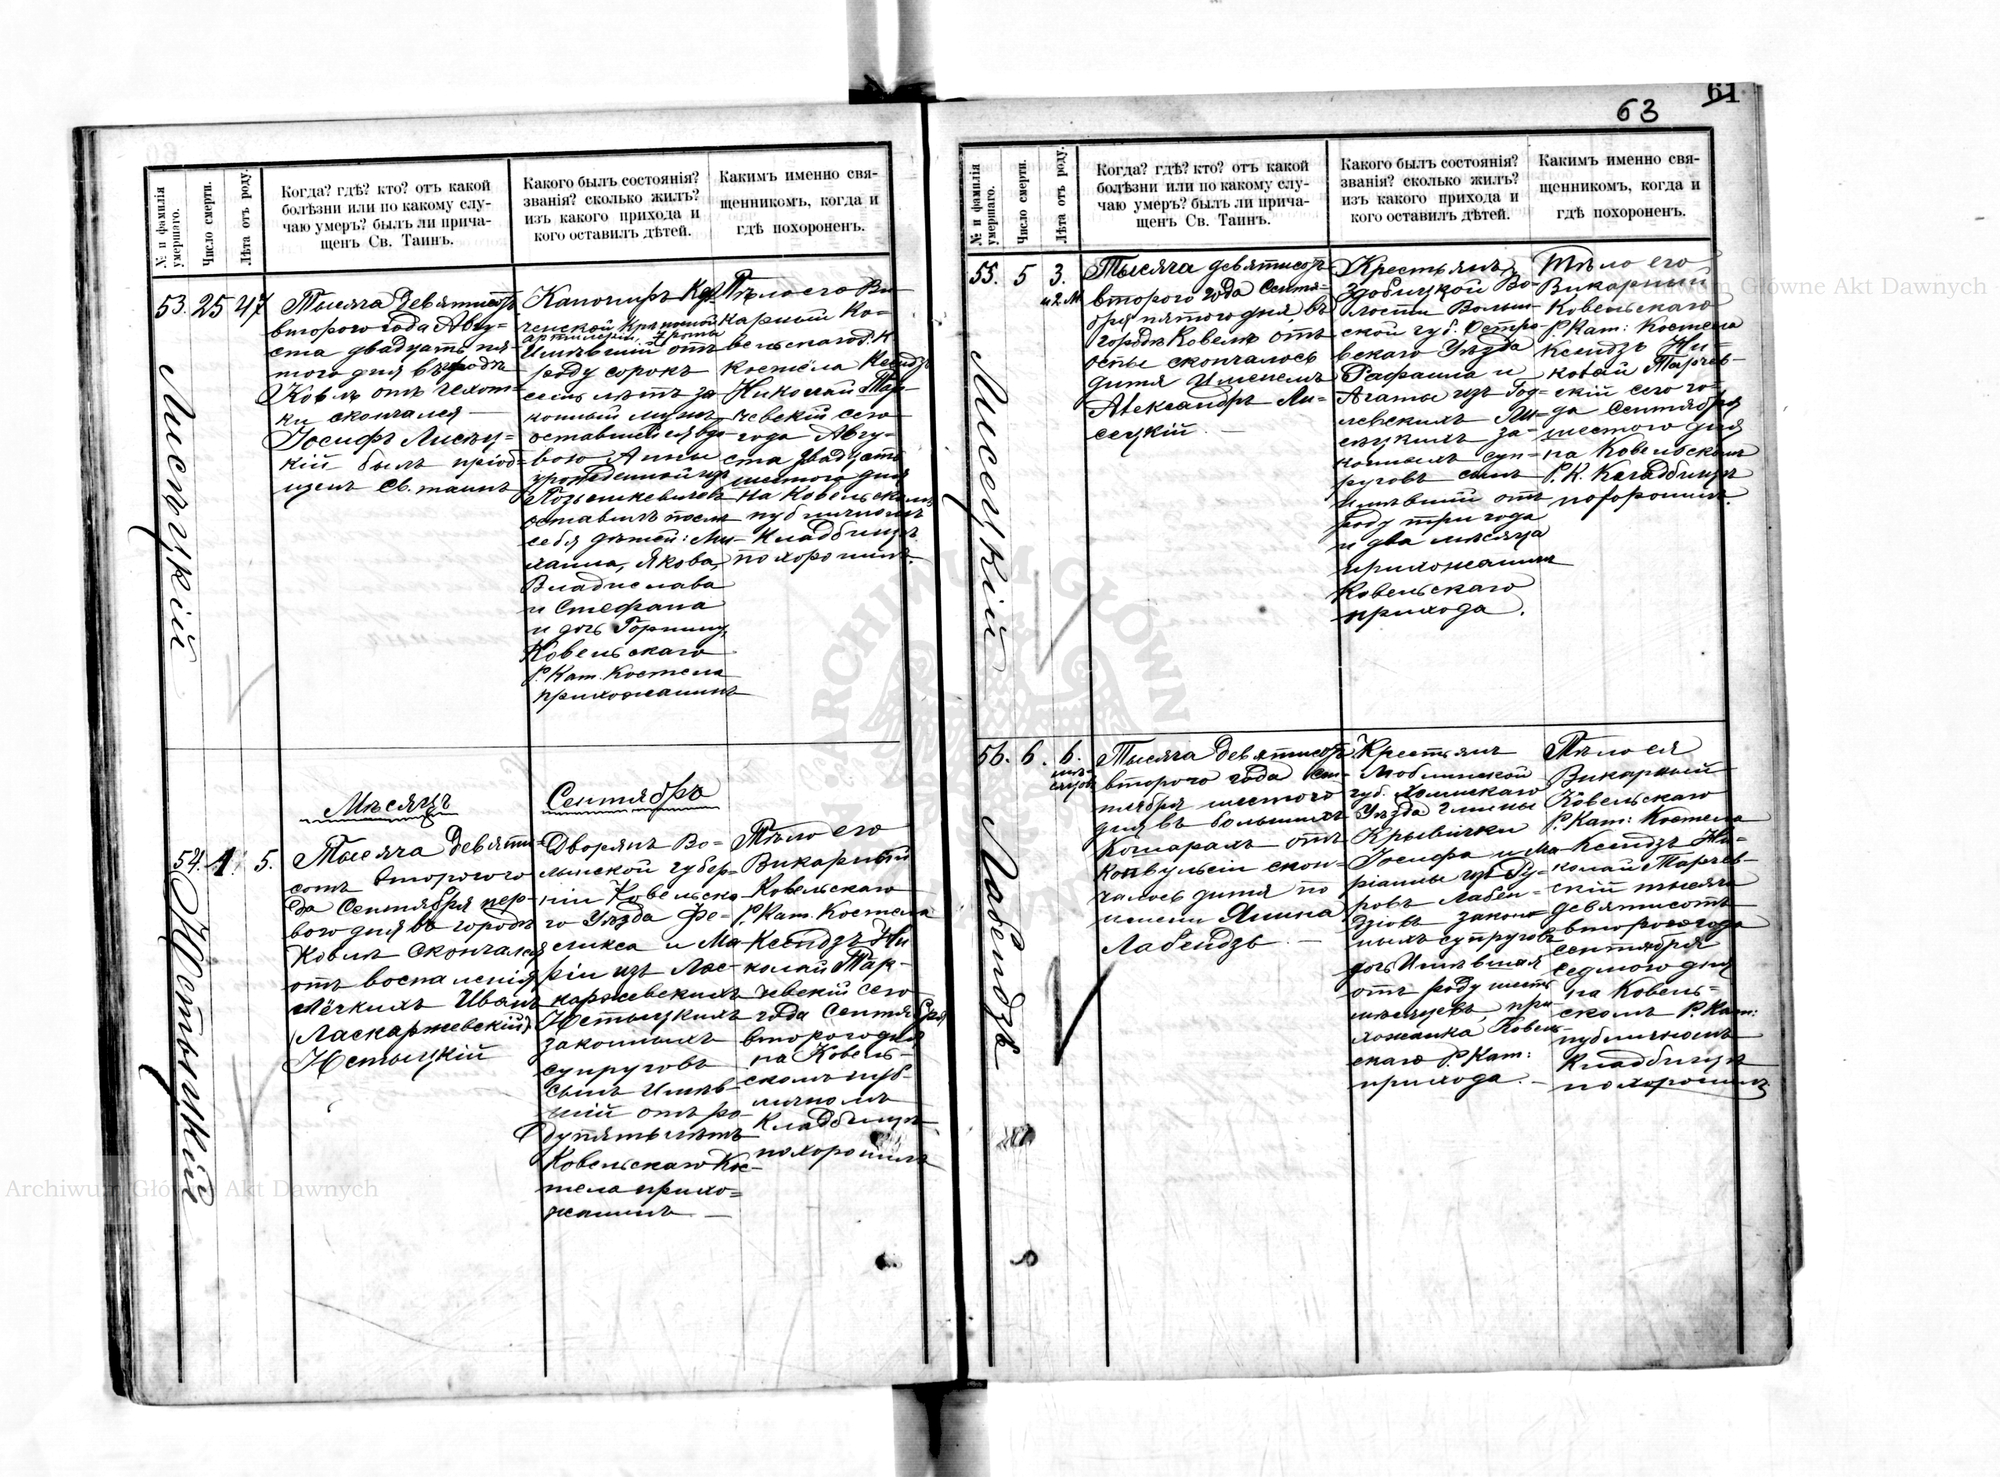 63
61
№ и фамилія умершаго.
Число смерти.
Лѣта отъ роду.
Когда? гдѣ? кто? отъ какой
болѣзни или по какому слу-
чаю умеръ? былъ ли прича-
щенъ Св. Таинъ.
Какого былъ состоянія?
званія? сколько жилъ?
изъ какого прихода и
кого оставилъ дѣтей.
Какимъ именно свя-
щенникомъ, когда и
гдѣ похороненъ.
53. 25 47
Лисѣцкій
Тысяча девятисотъ
второго года Авгу-
ста двадцать пя-
того дня въ городѣ
Ковлѣ отъ чехот-
ки скончался —
Іосифъ Лисѣц-
кій былъ пріоб-
щенъ Св. таинъ
Канониръ
Крѣпостной
артиллеріи роты
Имѣвшій отъ
роду сорокъ
семь лѣтъ за
конный мужъ
оставшейся вдо-
вою Анны
урожденной изъ
оставилъ послѣ
себя дѣтей: Ми-
хаила, Якова,
Владислава
и Стефана
и дочь
Ковельскаго
Р. Кат. Костела
прихожанинъ
Тѣло его Ви-
карный Ко-
вельскаго Р. К.
Костёла Ксендзъ
Николай Тар-
чевскій сего
года Авгу-
ста двадцать
шестого дня
на Ковельскомъ
публичномъ
Кладбищѣ
похоронилъ.
Мѣсяцъ Сентябрь
54. 1. 5.
Нѣстыцкій
Тысяча девяти-
сотъ второго го
да Сентября пер-
вого дня въ городѣ
Ковлѣ скончался
отъ воспаленія
лёгкихъ Иванъ
(Ласкаржевскій)
Нѣстыцкій
Дворянъ Во-
лынской губер-
ніи Ковельска-
го Уѣзда Фе-
ликса и Ма-
ріи изъ Лас-
каржевскихъ
Нѣстыцкихъ
законныхъ
супруговъ
сынъ Имѣв-
шій отъ ро-
ду пять лѣтъ
Ковельскаго Кос-
тела прихо-
жанинъ —
Тѣло его
Викарный
Ковельскаго
Р. Кат. Костела
Ксендзъ Ни
колай Тар-
чевскій сего
года Сентября
второго дня
на Ковель-
скомъ пуб-
личномъ
Кладбищѣ
похоронилъ
№ и фамилія умершаго.
Число смерти.
Лѣта отъ роду.
Когда? гдѣ? кто? отъ какой
болѣзни или по какому слу-
чаю умеръ? былъ ли прича-
щенъ Св. Таинъ.
Какого былъ состоянія?
званія? сколько жилъ?
изъ какого прихода и
кого оставилъ дѣтей.
Какимъ именно свя-
щенникомъ, когда и
гдѣ похороненъ.
55. 5 3.
и 2. М
Лисецкій
Тысяча девятисотъ
второго года Сентя-
бря пятого дня, въ
городѣ Ковелѣ отъ
оспы скончалось
дитя Именемъ
Александръ Ли-
сецкій. —
Крестьянъ
Здобицкой Во-
лости Волын-
ской губ. Остро-
вскаго Уѣзда
Рафаила и
Агаты изъ Год-
левскихъ Ли-
сѣцкихъ за-
конныхъ суп-
руговъ сынъ
Имѣвшій отъ
роду три года
и два мѣсяца
прихожанинъ
Ковельскаго
прихода.
Тѣло его
Викарный
Ковельскаго
Р. Кат: Костела
Ксендзъ Ни-
колай Тарчев-
скій сего го-
да Сентября
шестого дня
на Ковельскомъ
Р. К. Кладбищѣ
похоронилъ.
56. 6. 6.
мѣ-
сяцовъ
Лабендзь
Тысяча девятисотъ
второго года Сен-
тября шестого
дня въ большихъ
Кошарахъ отъ
конвульсіи скон-
чалось дитя по
имени Янина
Лабендзь. —
Крестьянъ
Люблинской
губ. Холмскаго
Уѣзда Гмины
Крывички
Іосифа и Ма
ріанны изъ Гу-
ровъ Лабен-
дзіовъ закон-
ныхъ супруговъ
дочь Имѣвшая
отъ роду шесть
мѣсяцевъ, при-
хожанка Ковель-
скаго Р. Кат:
прихода. —
Тѣло ея
Викарный
Ковельскаго
Р. Кат: Костела
Ксендзъ Ни-
колай Тарчев-
скій тысяча
девятисотъ
второго года
сентября
седмого дня
на Ковель-
скомъ Р. Кат:
публичномъ
Кладбищѣ
похоронилъ
Archiwum Główne Akt Dawnych
Archiwum Główne Akt Dawnych
ARCHIWUM GŁÓWNE